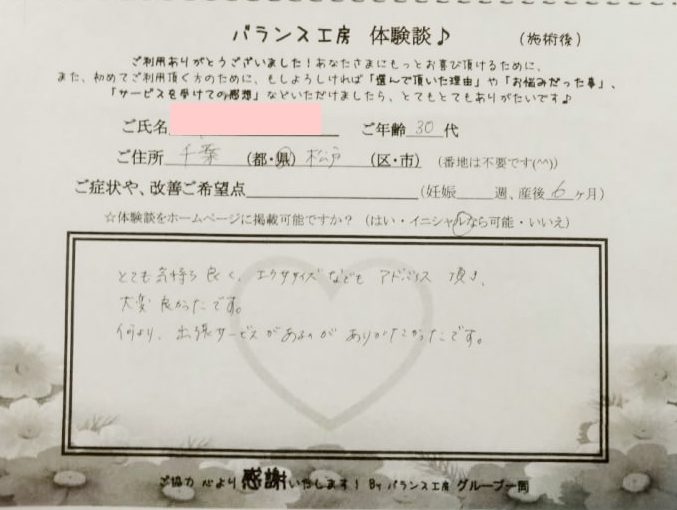 バランス工房 体験談♪ (施術後)
ご利用ありがとうございました！あなたさまにもっとお喜び頂けるために、
また、初めてご利用頂く方のために、もしよろしければ「選んで頂いた理由」や「お悩みだった事」、
「サービスを受けての感想」などいただけましたら、とてもとてもありがたいです♪
ご氏名 ご年齢 30 代
ご住所 千葉 (都・県) 松戸 (区・市) (番地は不要です(^^))
ご症状や、改善ご希望点 (妊娠 週、産後 6 ヶ月)
☆体験談をホームページに掲載可能ですか？ (はい・イニシャルなら可能・いいえ)
とても気持ち良く、エクササイズなどもアドバイス頂き、
大変良かったです。
何より、出張サービスがあるのがありがたかったです。
ご協力 心より感謝い致します！ By バランス工房 グループ一同